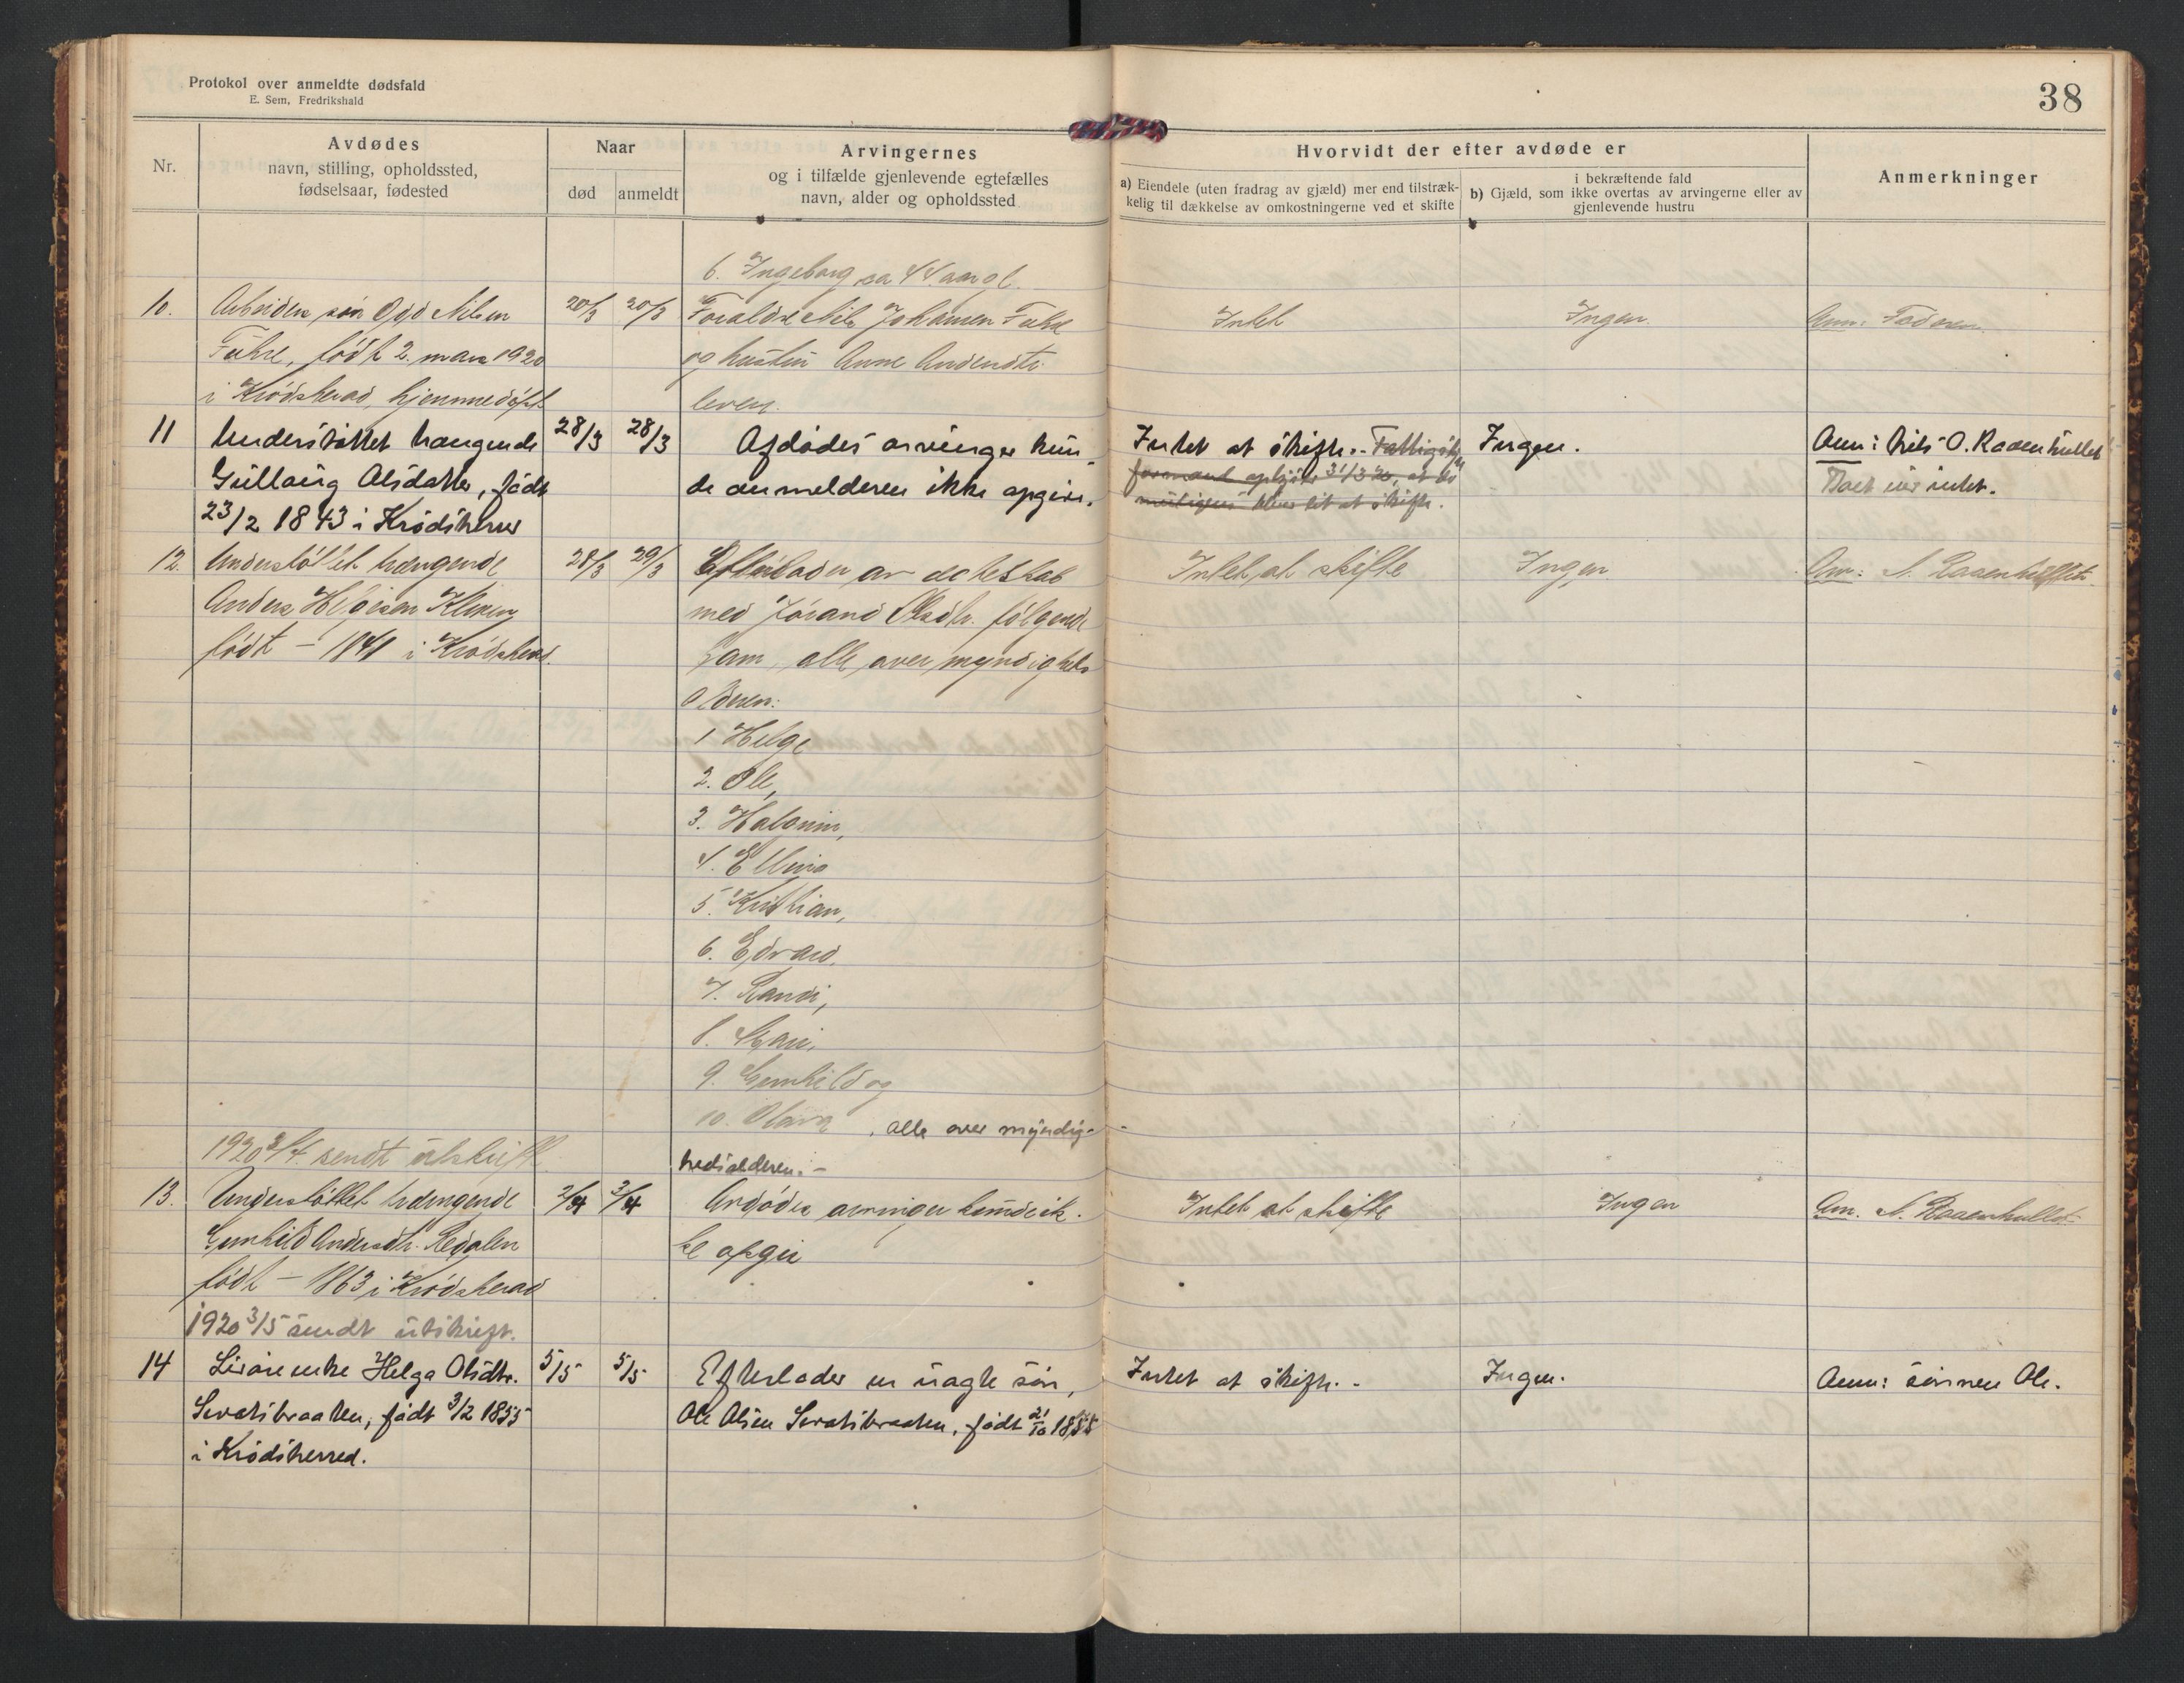 Protokol over anmeldte dødsfald
E. Sem, Fredrikshald
38
Nr.
Avdødes
navn, stilling, opholdssted,
fødselsaar, fødested
Naar
død
anmeldt
Arvingernes
og i tilfælde gjenlevende egtefælles
navn, alder og opholdssted
Hvorvidt der efter avdøde er
a) Eiendele (uten fradrag av gjæld) mer end tilstræk-
kelig til dækkelse av omkostningerne ved et skifte
i bekræftende fald
b) Gjæld, som ikke overtas av arvingerne eller av
gjenlevende hustru
Anmerkninger
6. Ingeborg ca 44 aar gl.
10. Arbeider søn Odd Nilsen 20/3 20/3 Forældre Nils Johansen Fuhre Intet Ingen. Anm: Faderen.
Fuhre, født 2. mars 1920 og hustru Anne Andersdtr.
i Krødsherad, hjemmedøpt lever.
11 Understøttet trængende 28/3 28/3 Afdødes arvinger kun- Intet at skifte.- Fattigsty Ingen. Anm: Nils O. Raaenhullet
Gullaug Olsdatter, født de anmelderen ikke opgive. formand oplyste 31/3 20, at der Boet eier intet.
23/2 1843 i Krødsherred muligens blir lit at skifte.
12. Understøttet trængende 28/3 29/3 Efterlader av egteskab Intet at skifte Ingen Anm: N. Raaenhullet
Anders Helgesen med Jørand Olsdtr. følgende
født - 1841 i Krødsherad. barn, alle over myndighets
alderen:
1 Helge
2. Ole,
3. Halgrim,
4. Elling
5. Kristian,
6. Edvard,
7. Randi,
8. Mari,
9. Gunhild og
10. Olava, alle over myndig-
hedsalderen.-
1920 3/4. sendt utskrift
13. Understøttet trængende 2/4 3/4 Avdødes arvinger kunde ik- Intet at skifte Ingen Anm. N. Raaenhullet
Gunhild Andersdtr. Redalen ke opgis
født - 1863 i Krødsherad
1920 3/5 sendt utskrift.
14 Livøreenke Helga Olsdtr. 5/5 5/5 Efterlader en uægte søn, Intet at skifte.- Ingen. Anm: sønnen Ole.
Sevatsbraaten, født 3/2 1835 Ole Olsen Sevatsbraaten, født 21/10 1855
i Krødsherred.